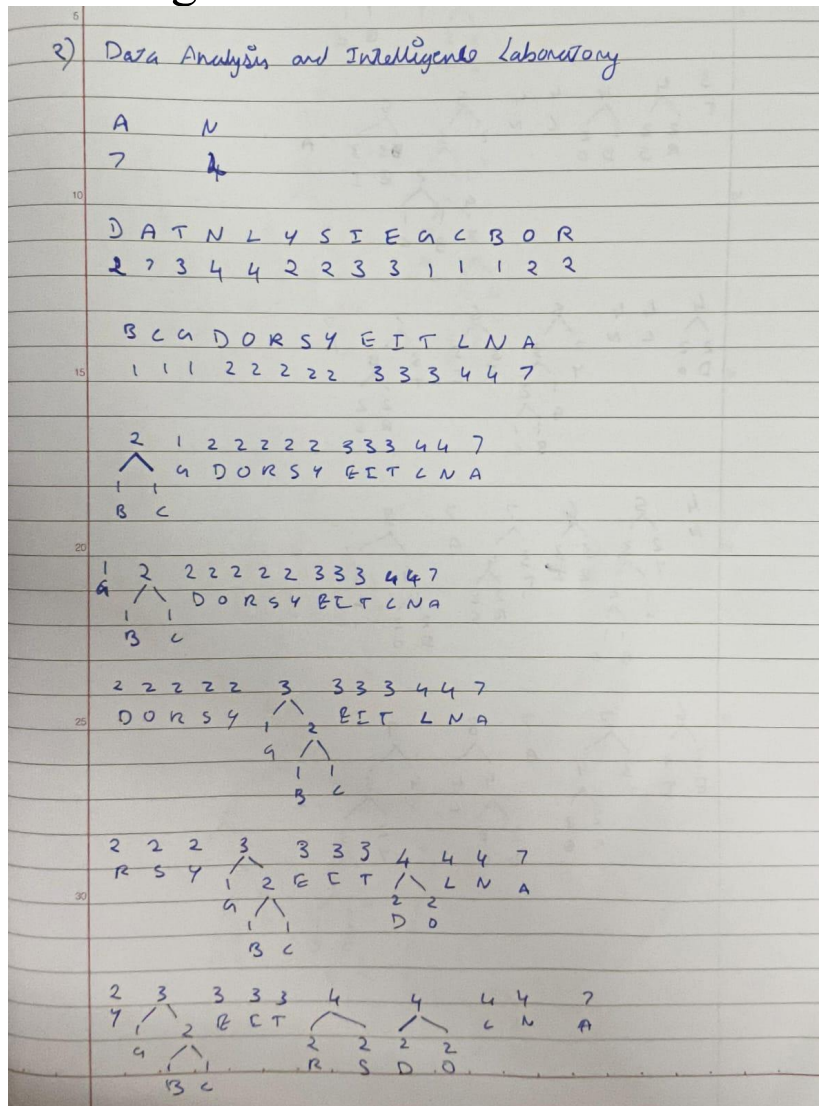 2) Data Analysis and Intelligence Laboratory
A N
7 4
D A T N L Y S I E G C B O R
2 7 3 4 4 2 2 3 3 1 1 1 2 2
B C G D O R S Y E I T L N A
1 1 1 2 2 2 2 2 3 3 3 4 4 7
2 1 2 2 2 2 2 3 3 3 4 4 7
G D O R S Y E I T L N A
1 1
B C
1 2 2 2 2 2 2 3 3 3 4 4 7
G D O R S Y E I T L N A
1 1
B C
2 2 2 2 2 3 3 3 3 4 4 7
D O R S Y 1 2 E I T L N A
G
1 1
B C
2 2 2 3 3 3 3 4 4 4 7
R S Y 1 2 E I T L N A
G 2 2
1 1 D O
B C
2 3 3 3 3 4 4 4 4 7
Y 1 2 E I T L N A
G 2 2 2 2
1 1 R S D O
B C
5
10
15
20
25
30